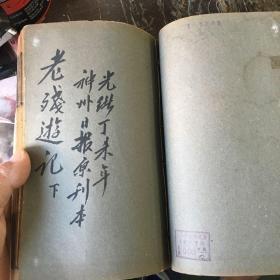 光緒丁未年
神州日报原刊本
老殘遊记
下